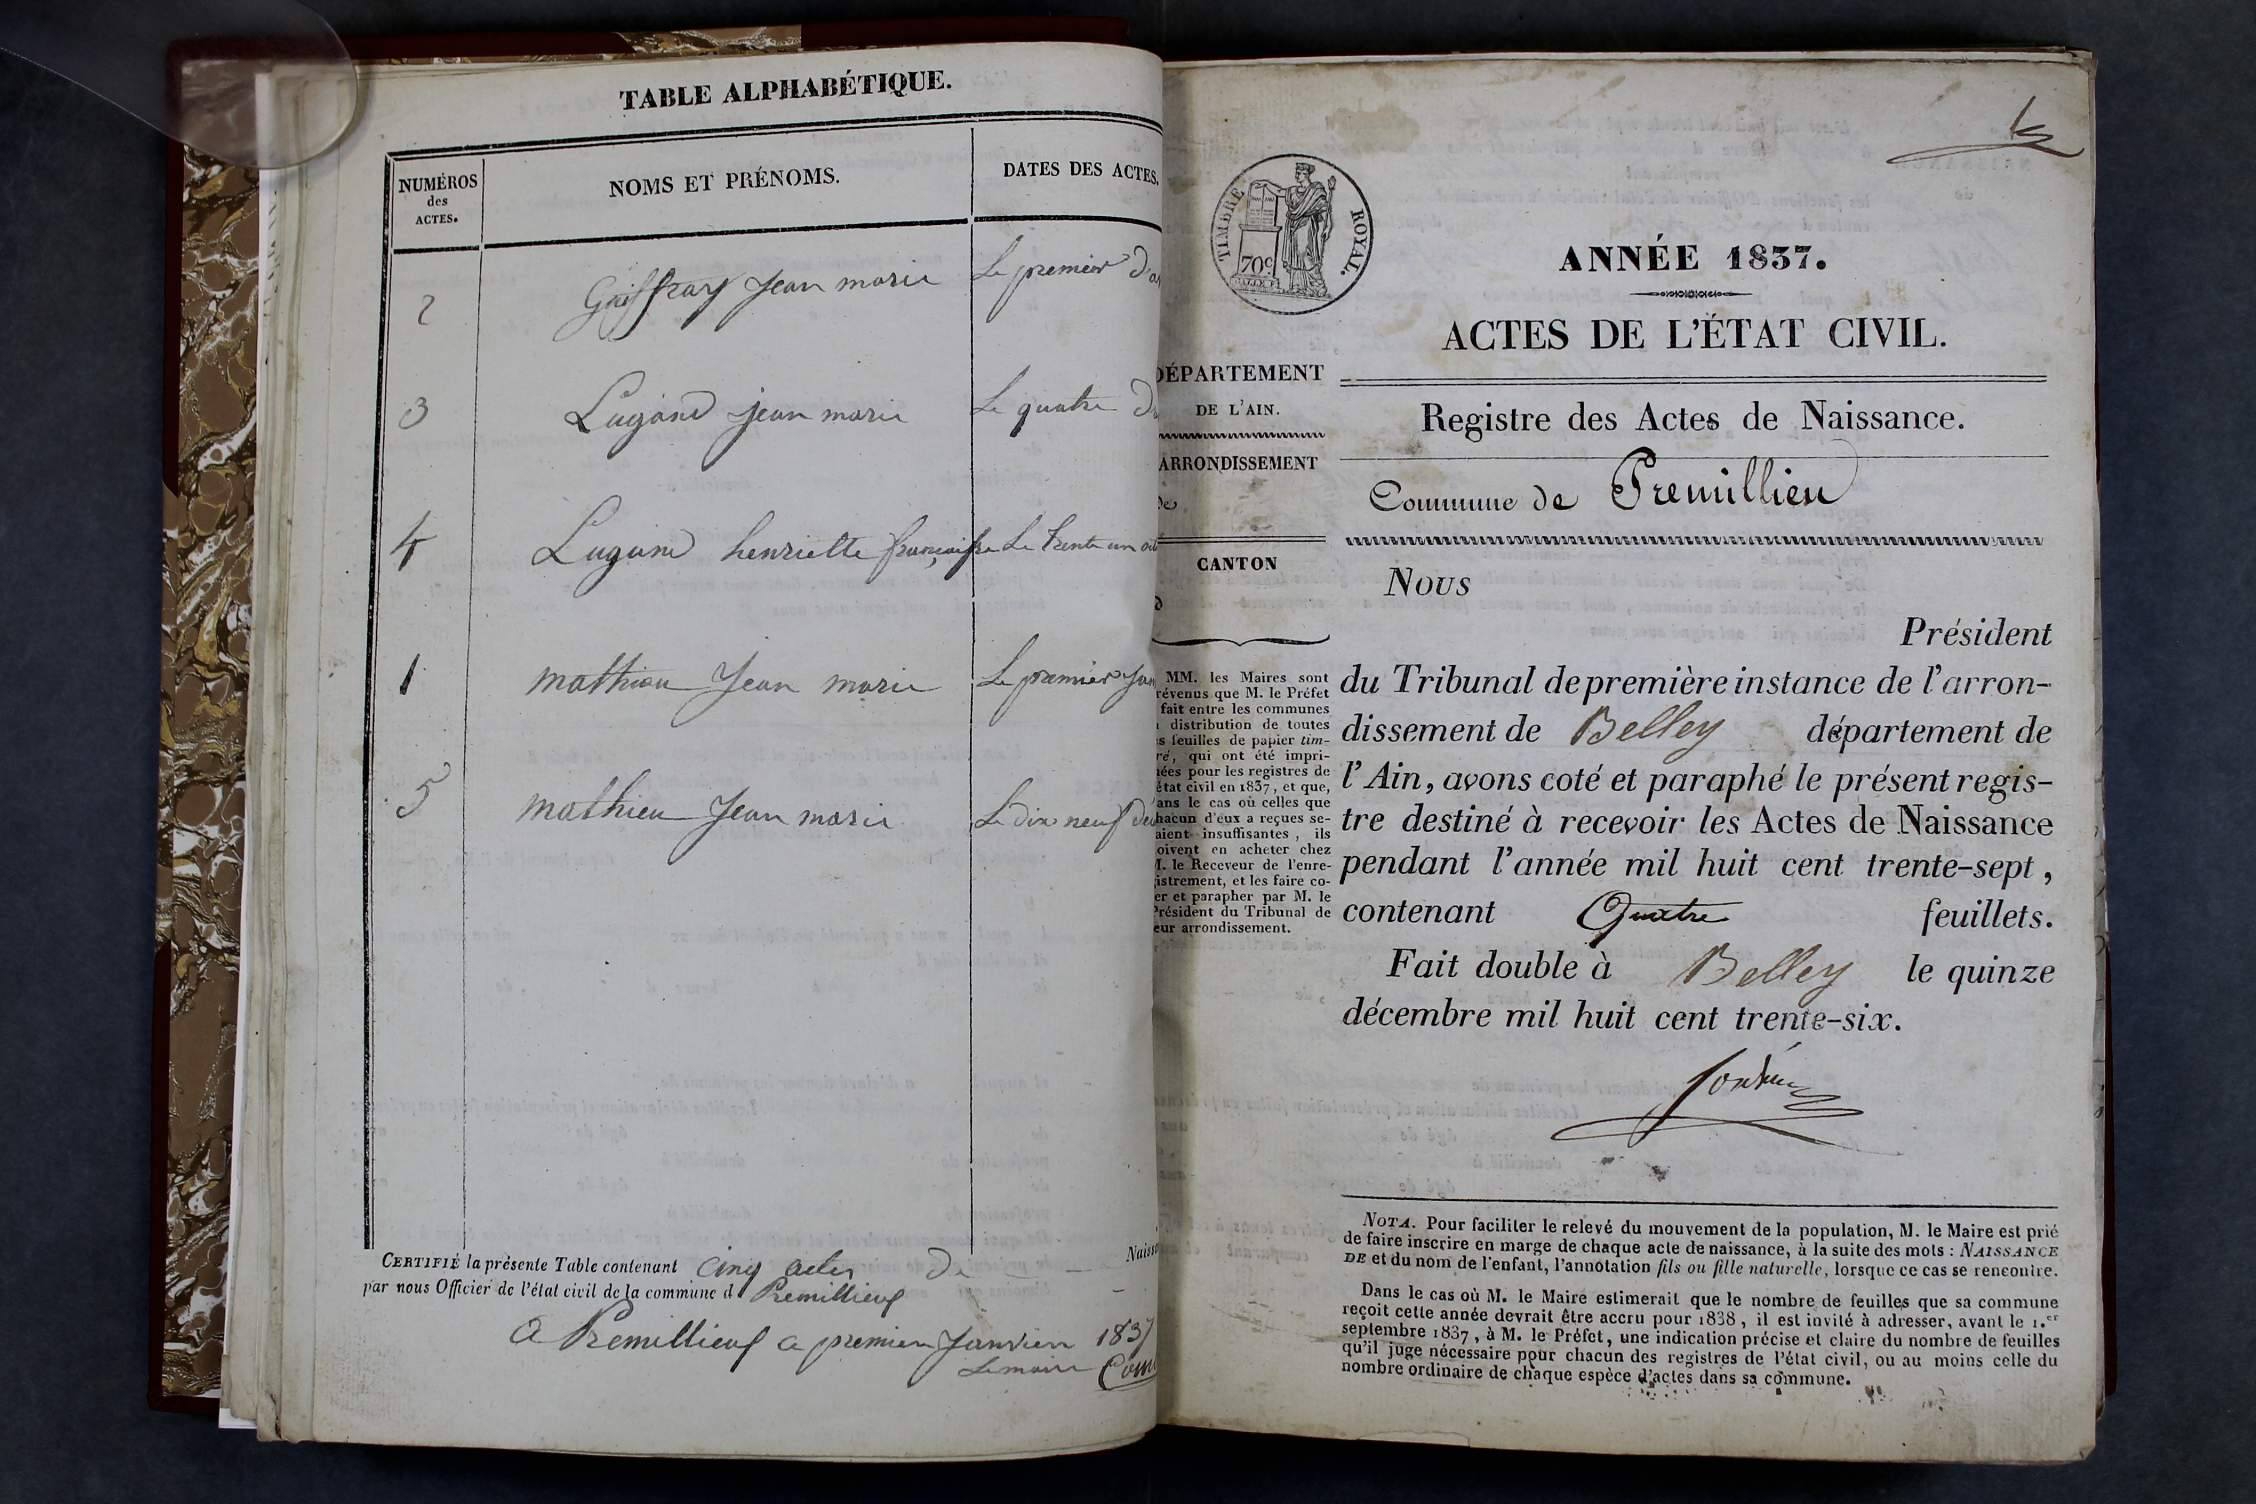 TABLE ALPHABÉTIQUE.
NUMÉROS
des
ACTES.
NOMS ET PRÉNOMS.
DATES DES ACTES.
2 Jean marie Le premier
3 Lugand jean marie Le quatre
4 Lugand henriette françoise Le trente un
1 mathieu Jean marie Le premier
5 mathieu Jean marie Le dix neuf
CERTIFIÉ la présente Table contenant cinq actes de
par nous Officier de l'état civil de la commune d Premillieux
a Premillieux a premier Janvier 1837
Le maire
TIMBRE ROYAL.
70c
ANNÉE 1837.
ACTES DE L'ÉTAT CIVIL.
DÉPARTEMENT
DE L'AIN.
Registre des Actes de Naissance.
ARRONDISSEMENT
de
Commune de Premillieu
CANTON
d
Nous
Président
du Tribunal de première instance de l'arron-
dissement de Belley département de
l'Ain, avons coté et paraphé le présent regis-
tre destiné à recevoir les Actes de Naissance
pendant l'année mil huit cent trente-sept,
contenant Quatre feuillets.
Fait double à Belley le quinze
décembre mil huit cent trente-six.
MM. les Maires sont
révenus que M. le Préfet
fait entre les communes
distribution de toutes
s feuilles de papier tim-
ré, qui ont été impri-
ées pour les registres de
état civil en 1837, et que,
ans le cas où celles que
hacun d'eux a reçues se-
aient insuffisantes, ils
oivent en acheter chez
M. le Receveur de l'enre-
istrement, et les faire co-
er et parapher par M. le
Président du Tribunal de
eur arrondissement.
NOTA. Pour faciliter le relevé du mouvement de la population, M. le Maire est prié
de faire inscrire en marge de chaque acte de naissance, à la suite des mots : NAISSANCE
DE et du nom de l'enfant, l'annotation fils ou fille naturelle, lorsque ce cas se rencontre.
Dans le cas où M. le Maire estimerait que le nombre de feuilles que sa commune
reçoit cette année devrait être accru pour 1838, il est invité à adresser, avant le 1.er
septembre 1837, à M. le Préfet, une indication précise et claire du nombre de feuilles
qu'il juge nécessaire pour chacun des registres de l'état civil, ou au moins celle du
nombre ordinaire de chaque espèce d'actes dans sa commune.